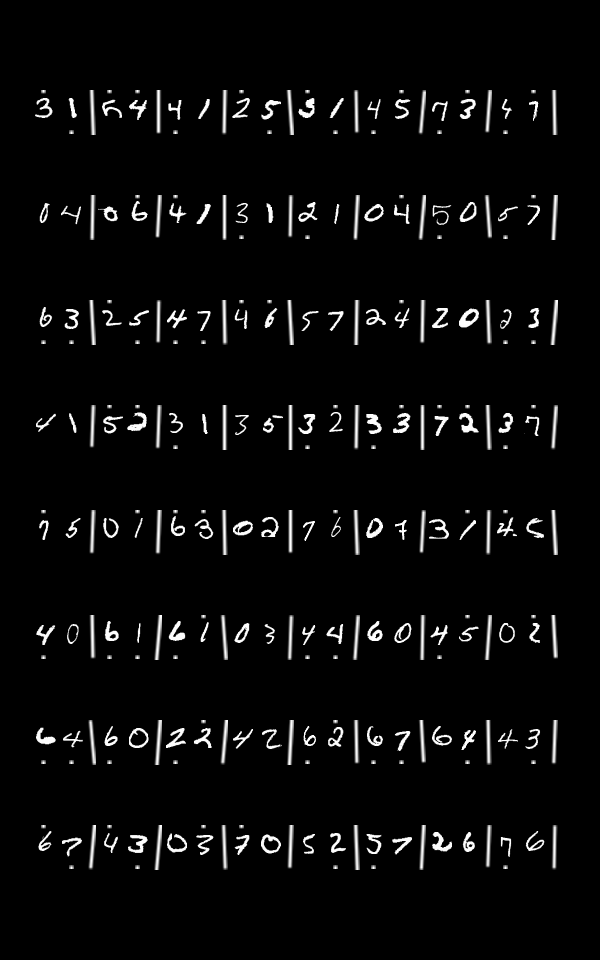 3 1 | 5 4 | 4 1 | 2 5 | 3 1 | 4 5 | 7 3 | 4 7 |
0 4 | 0 6 | 4 1 | 3 1 | 2 1 | 0 4 | 5 0 | 5 7 |
6 3 | 2 5 | 4 7 | 4 6 | 5 7 | 2 4 | 2 0 | 2 3 |
4 1 | 5 2 | 3 1 | 3 5 | 3 2 | 3 3 | 7 2 | 3 7 |
7 5 | 0 1 | 6 3 | 0 2 | 7 6 | 0 7 | 3 1 | 4 5 |
4 0 | 6 1 | 6 1 | 0 3 | 4 4 | 6 0 | 4 5 | 0 2 |
6 4 | 6 0 | 2 2 | 4 2 | 6 2 | 6 7 | 6 4 | 4 3 |
6 7 | 4 3 | 0 3 | 7 0 | 5 2 | 5 7 | 2 6 | 7 6 |